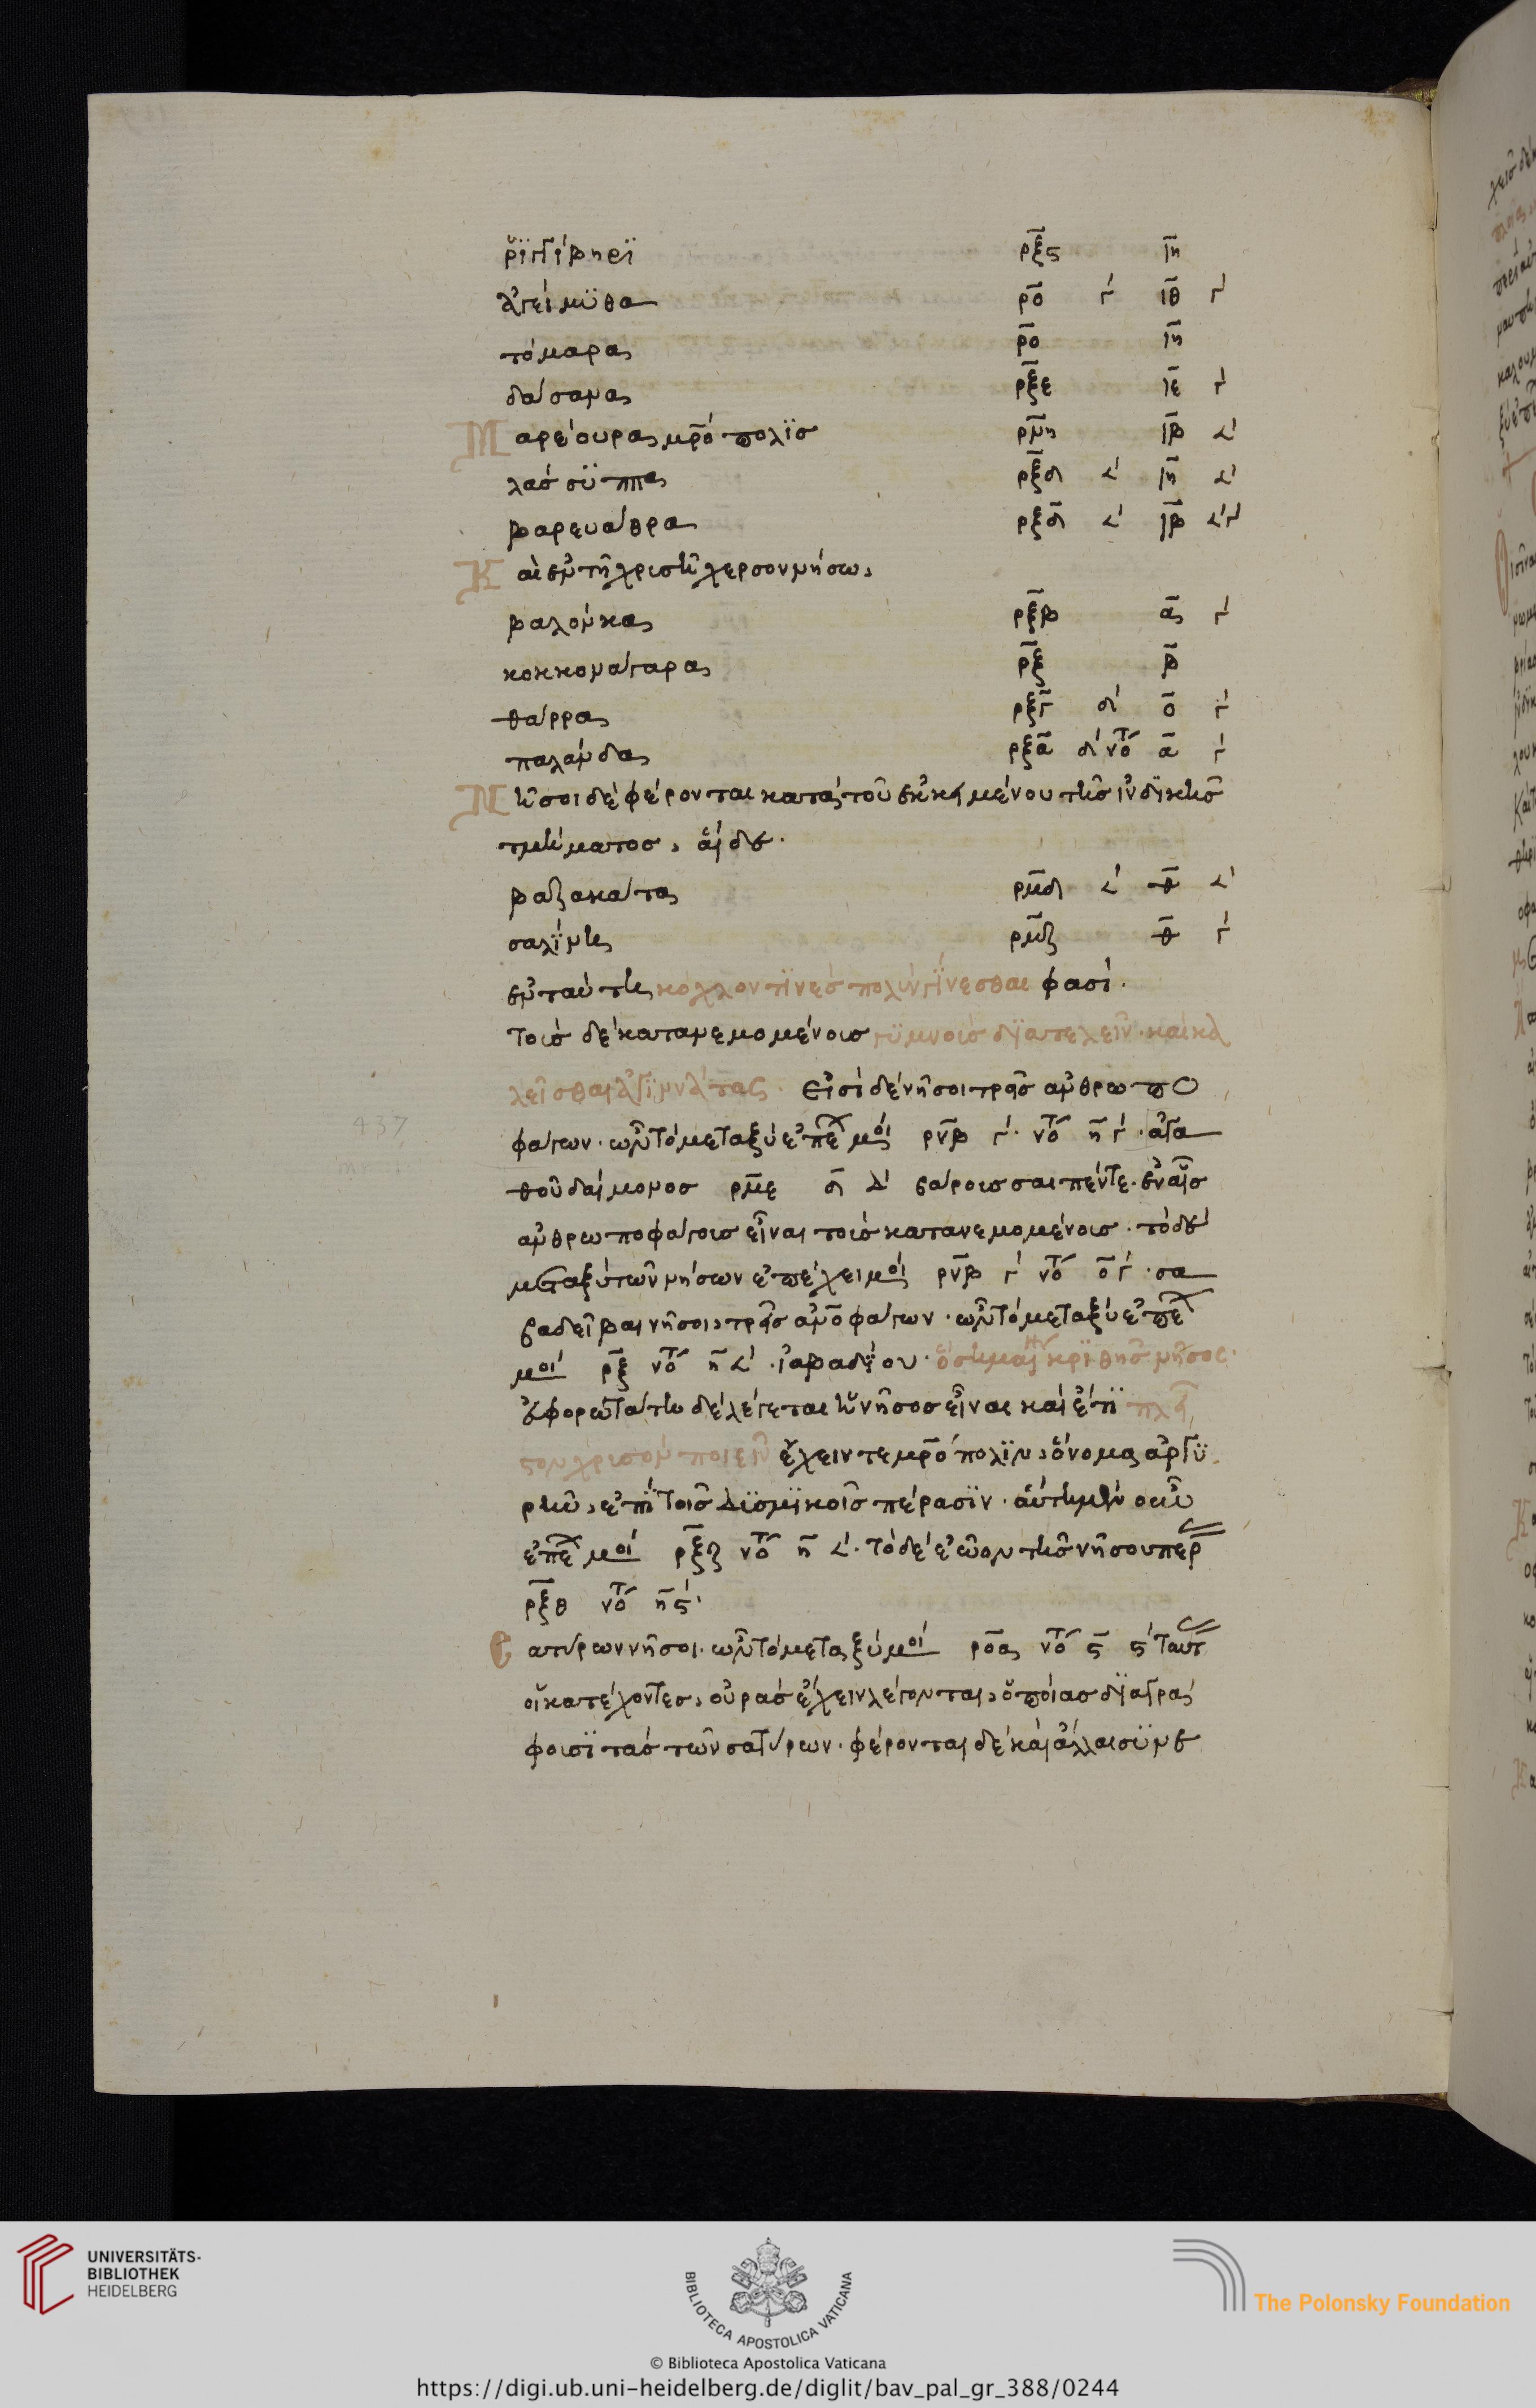 ῥϊγγίβηρϊ ρξς ιη
ἀγείμϋθα ρο γ´ ιθ γ´
τόμαρα ρο ιη
δάσανα ρξε ιε γ´
Μαρέουρα μρό πολϊσ ρμη ιβ 𐅵´
λασ σϋππα ρξδ 𐅵´ ιη 𐅵´
βαρευάθρα ρξδ 𐅵´ ιβ 𐅵´γ´
Καὶ ἐν τῆ χρισῆ χερσοννήσω,
βαλόνκα ρξβ δ γ´
κοκκονάγαρα ρξ β
θάρρα ρξγ δ´ ο γ´
παλάνδα ρξα δ´ νο α γ´
Νῆσοι δέ φέρονται κατά τοῦ ἐκκειμένου τῆσ ἰνδϊκῆσ
τμήματοσ, αἵδε·
βαζακάτα ρμδ 𐅵´ θ 𐅵´
σαλϊνη ρμζ θ γ´
ἐν ταύτη κόχλον τϊνέσ πολύν γίνεσθαι φασί.
τοισ δέ κατανεμομένοισ γϋμνοισ δϊατελεῖν· και κα
λεῖσθαι ἀγϊννάτας· εἰσί δέ νῆσοι τρεῖσ ἀνθρωπο
φάγων· ὧν τό μεταξύ ἐπέχ μοί ρνβ γ´· νο η γ´· ἀγα
θοῦ δαίμονοσ ρμε
ἀνθρωποφάγοισ εἶναι τοισ κατανεμομένοισ· τό δέ
μεταξύ τῶν νήσων ἐπέχει μοί ρνβ γ´ νο ο γ´· σα
βαδεῖβαι νῆσοι, τρεῖσ ἀνοφάγων· ὧν τό μεταξύ ἐπέχ
μοί ρξ νο η 𐅵´· ἰαβαδϊου· ὅ σημαίνει κρϊθῆσ νῆσος·
εὐφορωτάτη δέ λέγεται ἡ νῆσοσ εἶναι καί ἔτϊ πλεῖ
στον χρισόν ποιεῖν ἔχειν τε μρό πολϊν, ὄνομα ἀργϋ
ρῆν, ἐπϊ τοισ δϋσμϊκοῖσ πέρασϊν· αὕτη μέν οὖν
ἐπέχ μοί ρξζ νο η 𐅵´· τό δέ ἑῶον τῆσ νήσου περ
ρξθ νο η ς´·
Σατύρων νῆσοι· ὧν τό μεταξύ μοί ροα νο ς ς´ ταύτ
οἱ κατέχοντεσ, οὐρασ ἔχειν λέγονται, ὁποίασ δϊαγρά
φουσϊ τασ τῶν σατύρων· φέρονται δέ καί ἄλλαι σϋνε
437
UNIVERSITÄTS-
BIBLIOTHEK
HEIDELBERG
BIBLIOTECA APOSTOLICA VATICANA
The Polonsky Foundation
© Biblioteca Apostolica Vaticana
https://digi.ub.uni-heidelberg.de/diglit/bav_pal_gr_388/0244